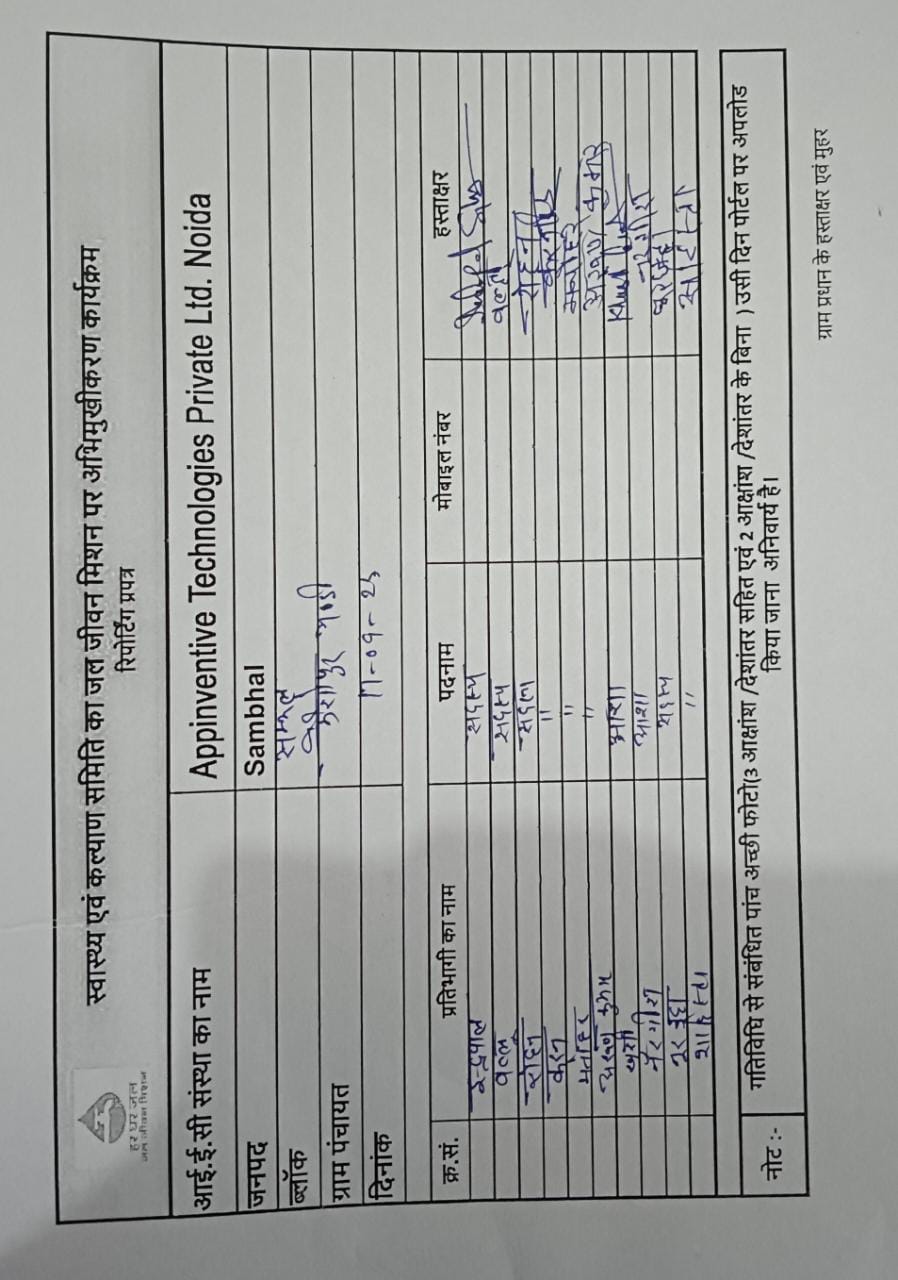 हर घर जल
जल जीवन मिशन
स्वास्थ्य एवं कल्याण समिति का जल जीवन मिशन पर अभिमुखीकरण कार्यक्रम
रिपोर्टिंग प्रपत्र
आई.ई.सी संस्था का नाम Appinventive Technologies Private Ltd. Noida
जनपद Sambhal
ब्लॉक सम्भल
ग्राम पंचायत
दिनांक 17-09-25
क्र.सं. प्रतिभागी का नाम पदनाम मोबाइल नंबर हस्ताक्षर
इन्द्रपाल सदस्य
वल्लू सदस्य
रोहन
करन "
मनोहर " मनोहर
अरूण कुमार " अरूण कुमार
आशा
नरगीश आशा नरगीश
नूरजहां सदस्य नूरजहां
शाइस्ता "
नोट :- गतिविधि से संबंधित पांच अच्छी फोटो(3 आक्षांश /देशांतर सहित एवं 2 आक्षांश /देशांतर के बिना ) उसी दिन पोर्टल पर अपलोड
किया जाना अनिवार्य है।
ग्राम प्रधान के हस्ताक्षर एवं मुहर